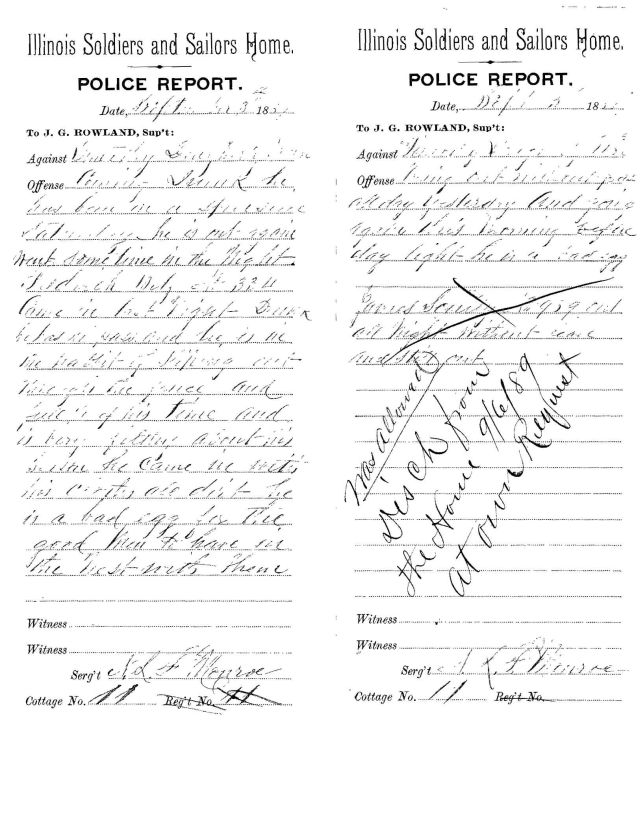 Illinois Soldiers and Sailors Home.
POLICE REPORT.
Date, Sept 3 188
To J. G. ROWLAND, Sup't:
Against Timothy
Offense Coming Drunk he
has been on a spree since
Saturday he is out again
went sometime in the Night
324
Came in last Night Drunk
he has no pass and he is in
the habit of slipping out
through the fence and
full of his time and
is very filthy about his
he came in with
his clothes all dirt he
is a bad egg for the
good Men to have in
the nest with them
Witness
Witness
Serg't N L F Monroe
Cottage No. 11 Reg't No. 11
Illinois Soldiers and Sailors Home.
POLICE REPORT.
Date, Sept 188
To J. G. ROWLAND, Sup't:
Against Timothy
Offense being out without pass
all day yesterday and gone
again this Morning before
day light he is a bad egg
James 939 out
all Night without leave
and still out
Was allowed
Disch from
the Home 9/6/89
at own Request
Witness
Witness
Serg't N L F Monroe
Cottage No. 11 Reg't No.